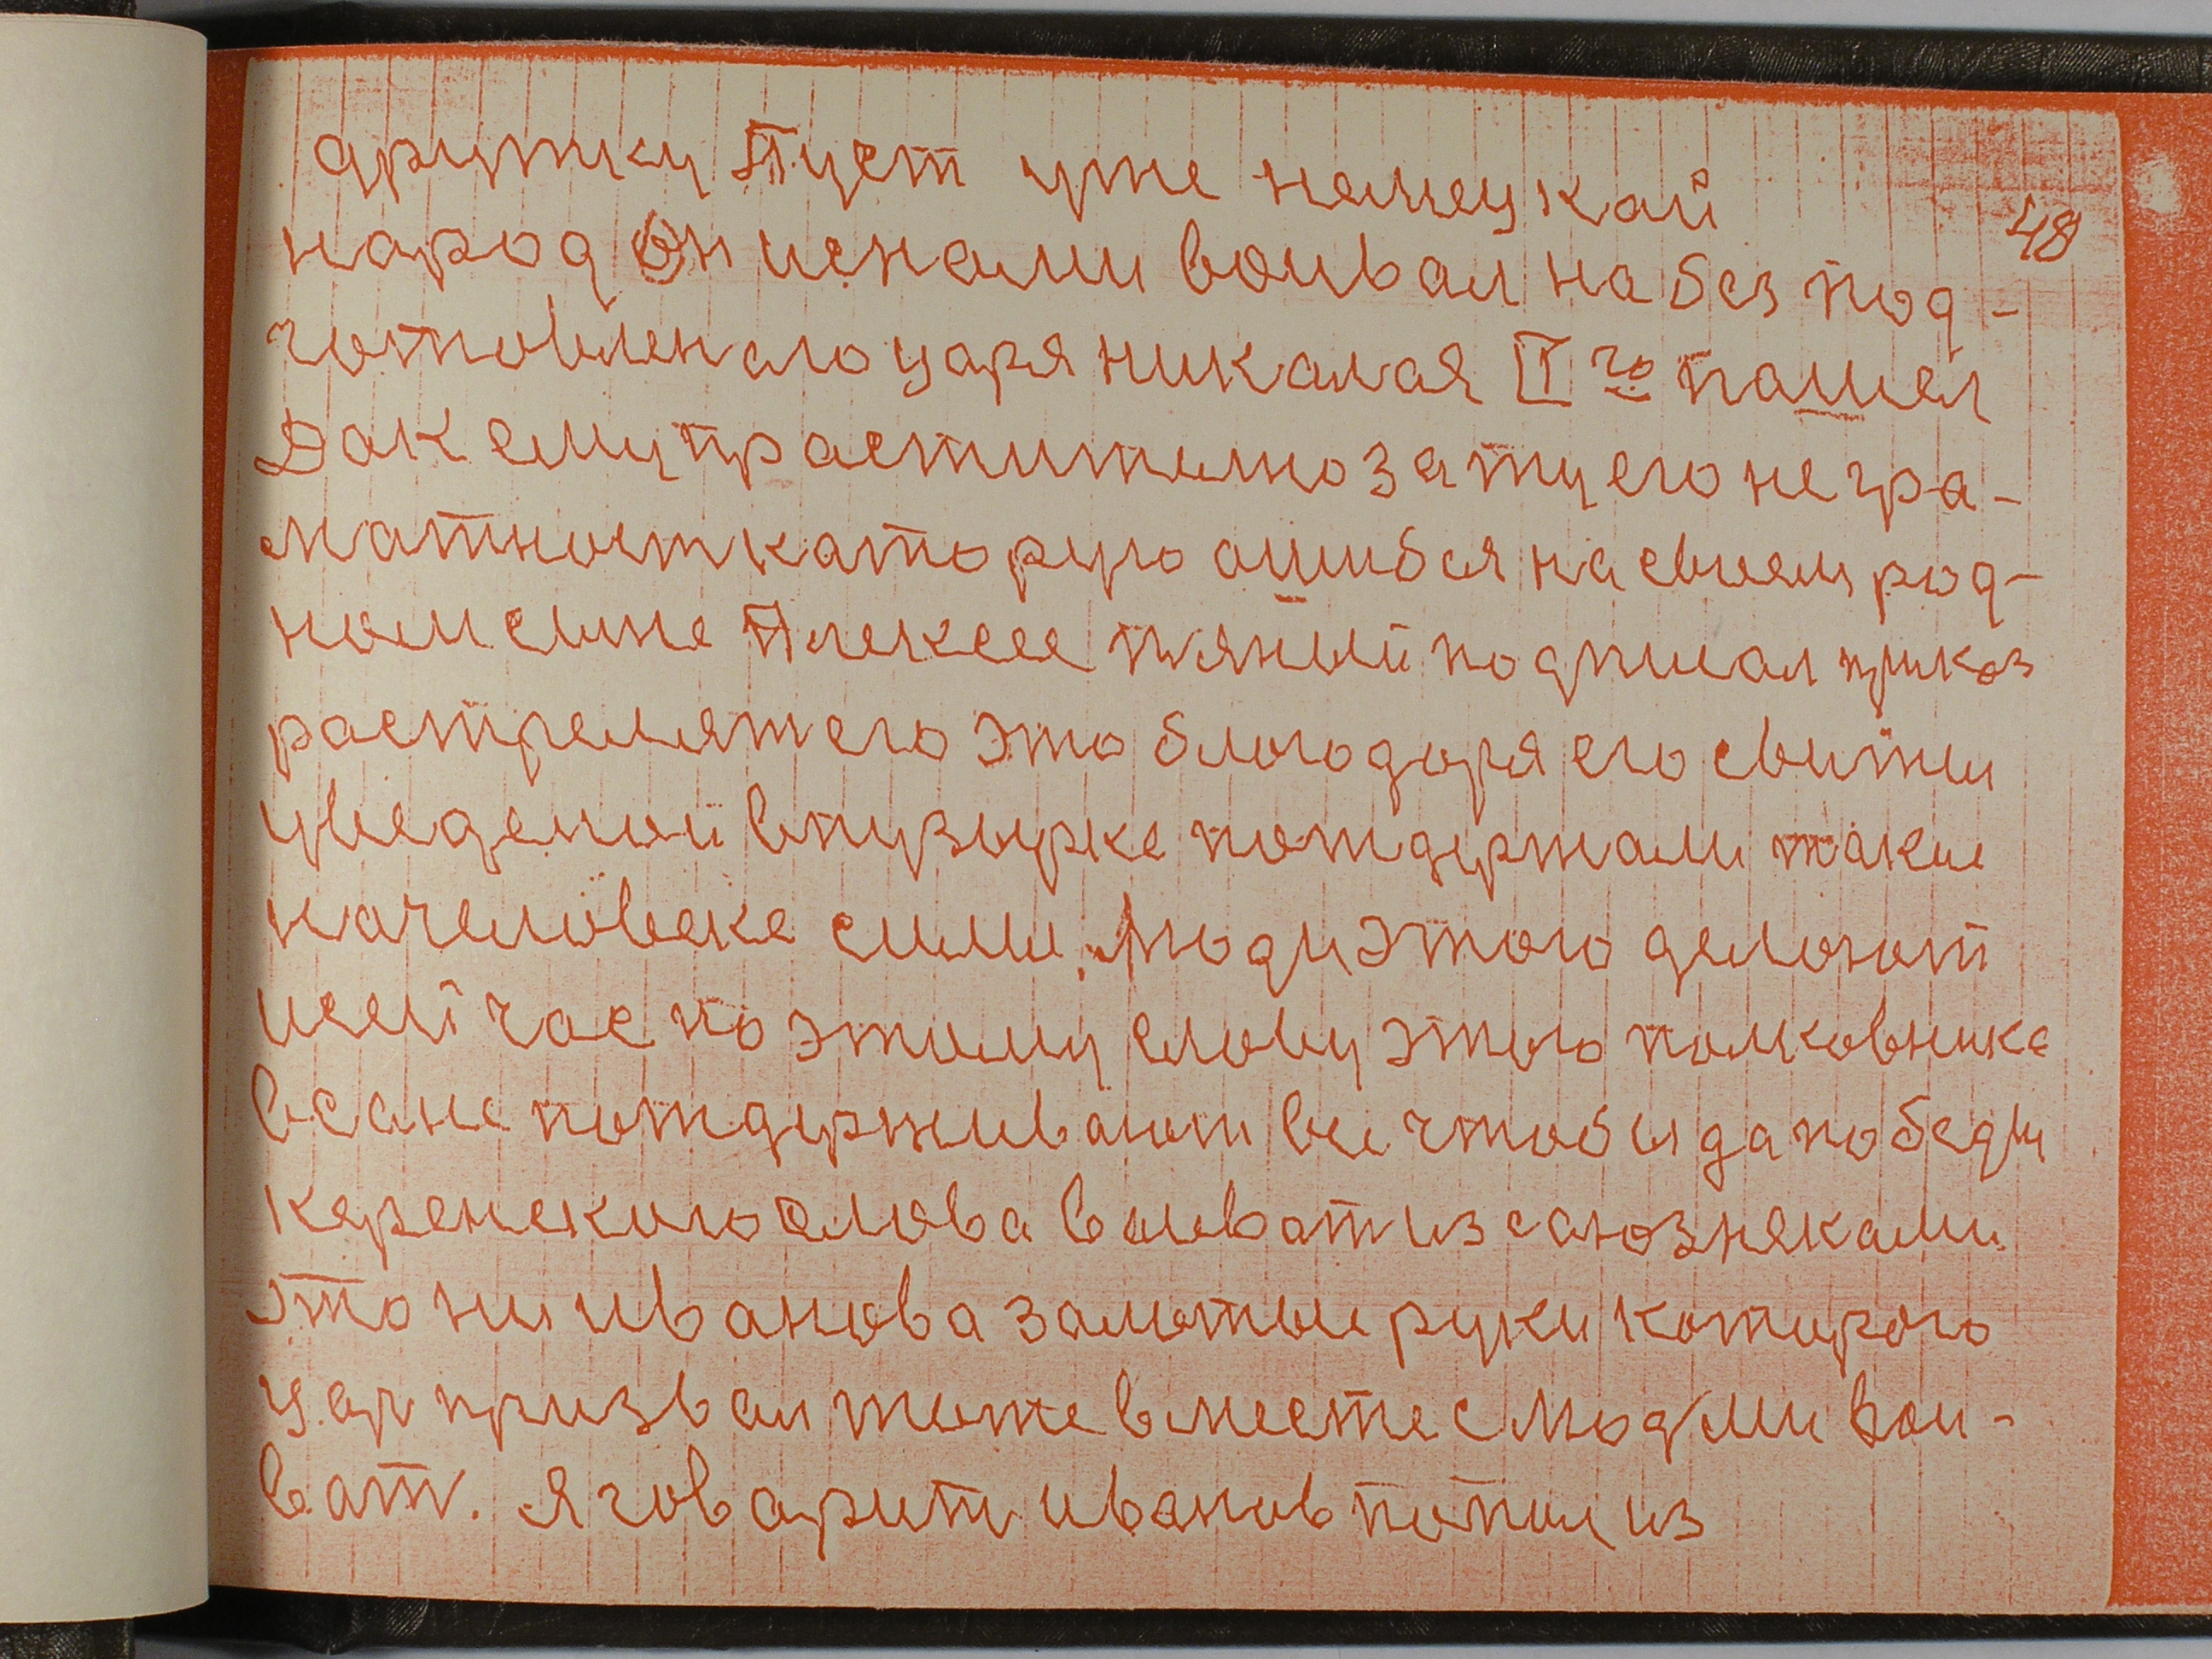 друтку Пуст уже немецкай
48
народ Он иснами воивал на без под-
готовленаго царя никалая II го пашел
Дак ему прастительно зату его не гра-
матност каторую ашибся на своем род-
ном сыне Алексее пяный подписал приказ
растрелят его это благодоря его свиты
уведеной впузырке потдержали такие
начеловеке силы. Люди этого делоют
исей час по этому слову этого полковника
всане потдерживают все чтобы да победы
керенскиго слова воиват из саюзняками
это ни иванова залотые руки которого
цар призвал тоже вместе слюдми вои-
ват. Я говарит иванов попал из